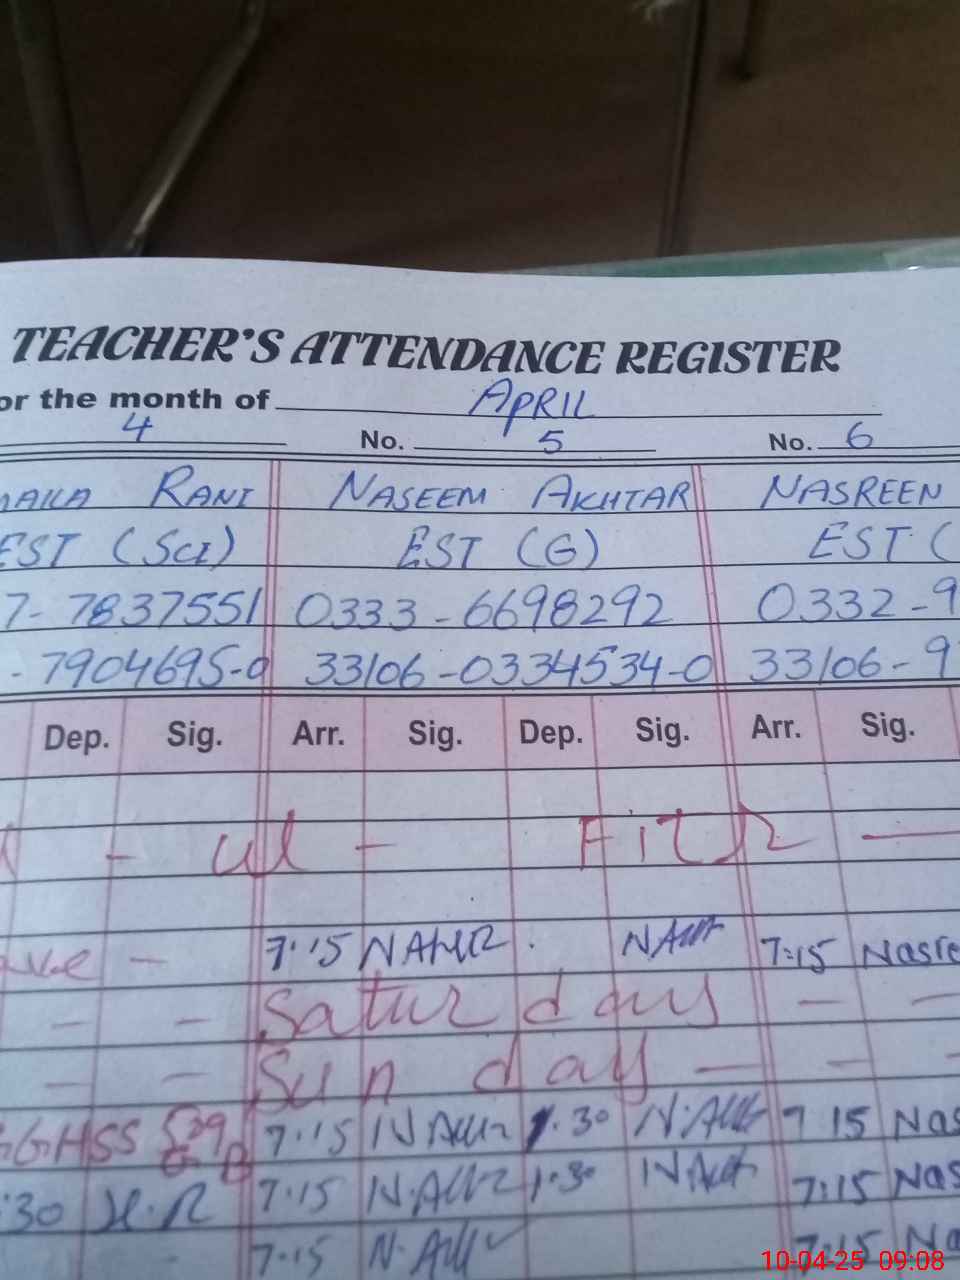 TEACHER'S ATTENDANCE REGISTER
or the month of APRIL
4 No. 5 No. 6
RANI NASEEM AKHTAR NASREEN
EST (SCI) EST (G) EST (
7-7837551 0333-6698292 0332-9
-7904695-0 33106-0334534-0 33106-9
Dep. Sig. Arr. Sig. Dep. Sig. Arr. Sig.
- ul - FITR —
- 7:15 7:15
- - Saturday - -
- - Sunday - - -
GGHSS 7:15 1:30 7 15 Nas
:30 7:15 1:30 7:15 Nas
- 7:15 7:15 Na
10-04-25 09:08